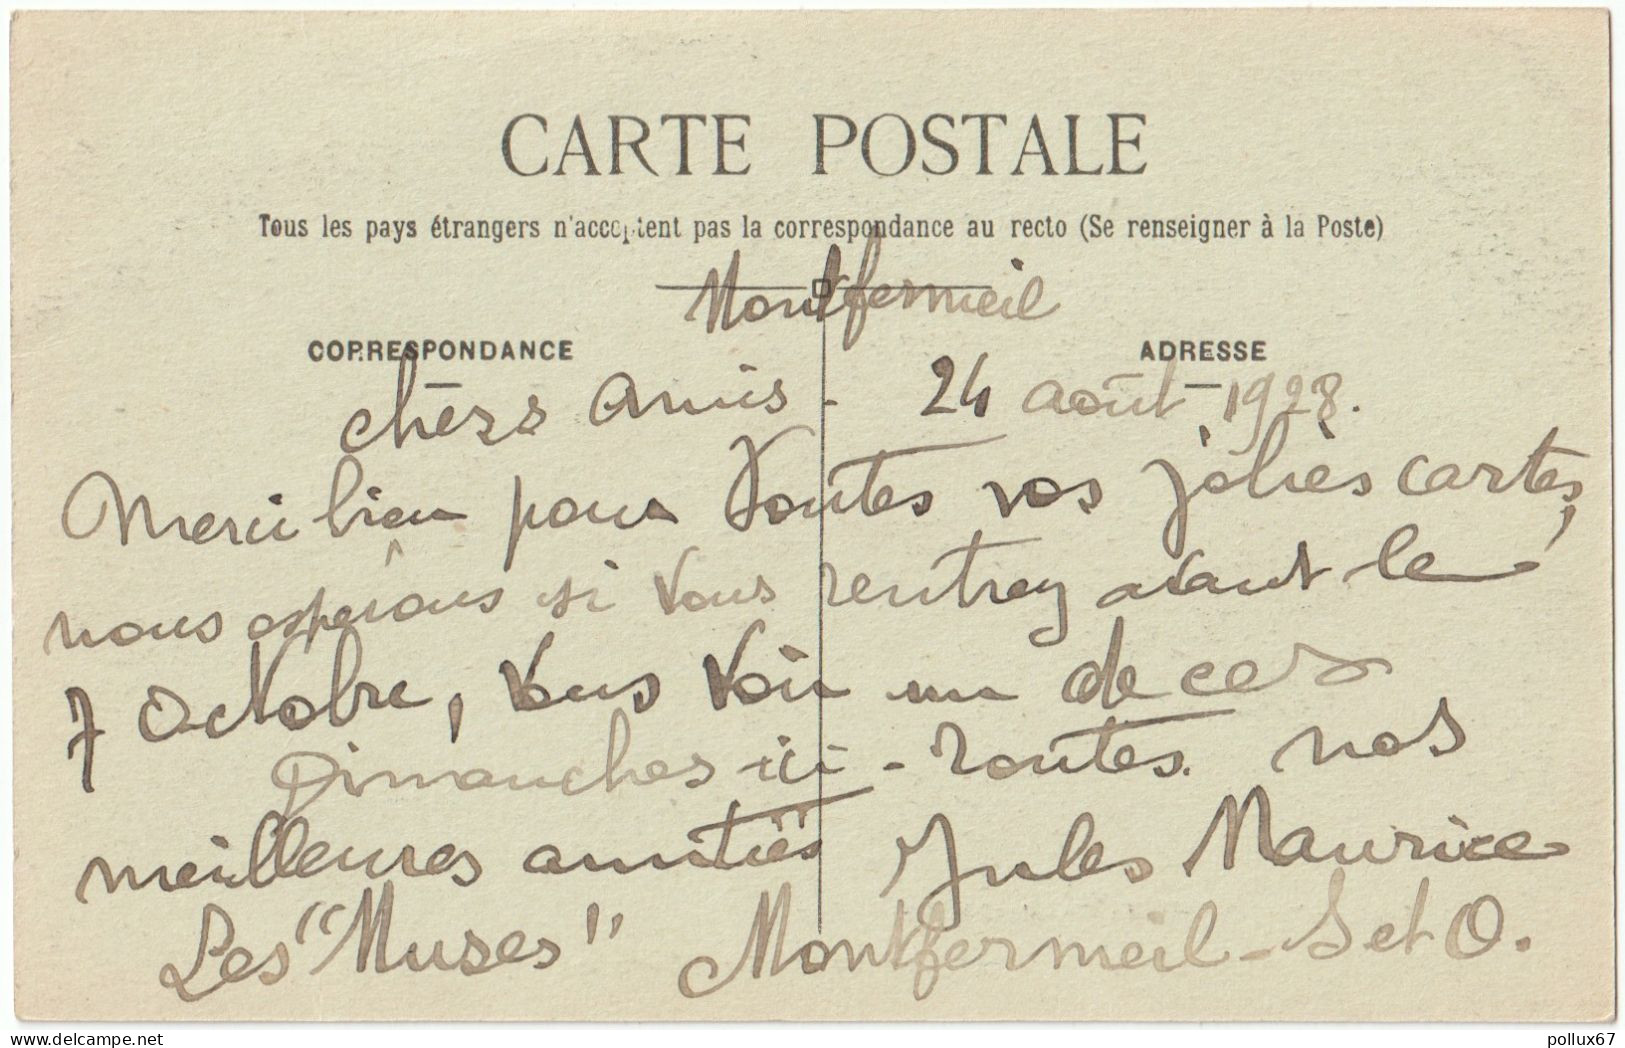 CARTE POSTALE
Tous les pays étrangers n'acceptent pas la correspondance au recto (Se renseigner à la Poste)
Montfermeil
CORRESPONDANCE ADRESSE
chers amis - 24 août 1928.
Merci bien pour toutes vos jolies cartes,
nous espérons si vous rentrez avant le
7 octobre, vous voir un de ces
Dimanches ici - toutes nos
meilleures amitiés Jules Maurice
Les "Muses" Montfermeil - S et O.
www.delcampe.net
pollux67